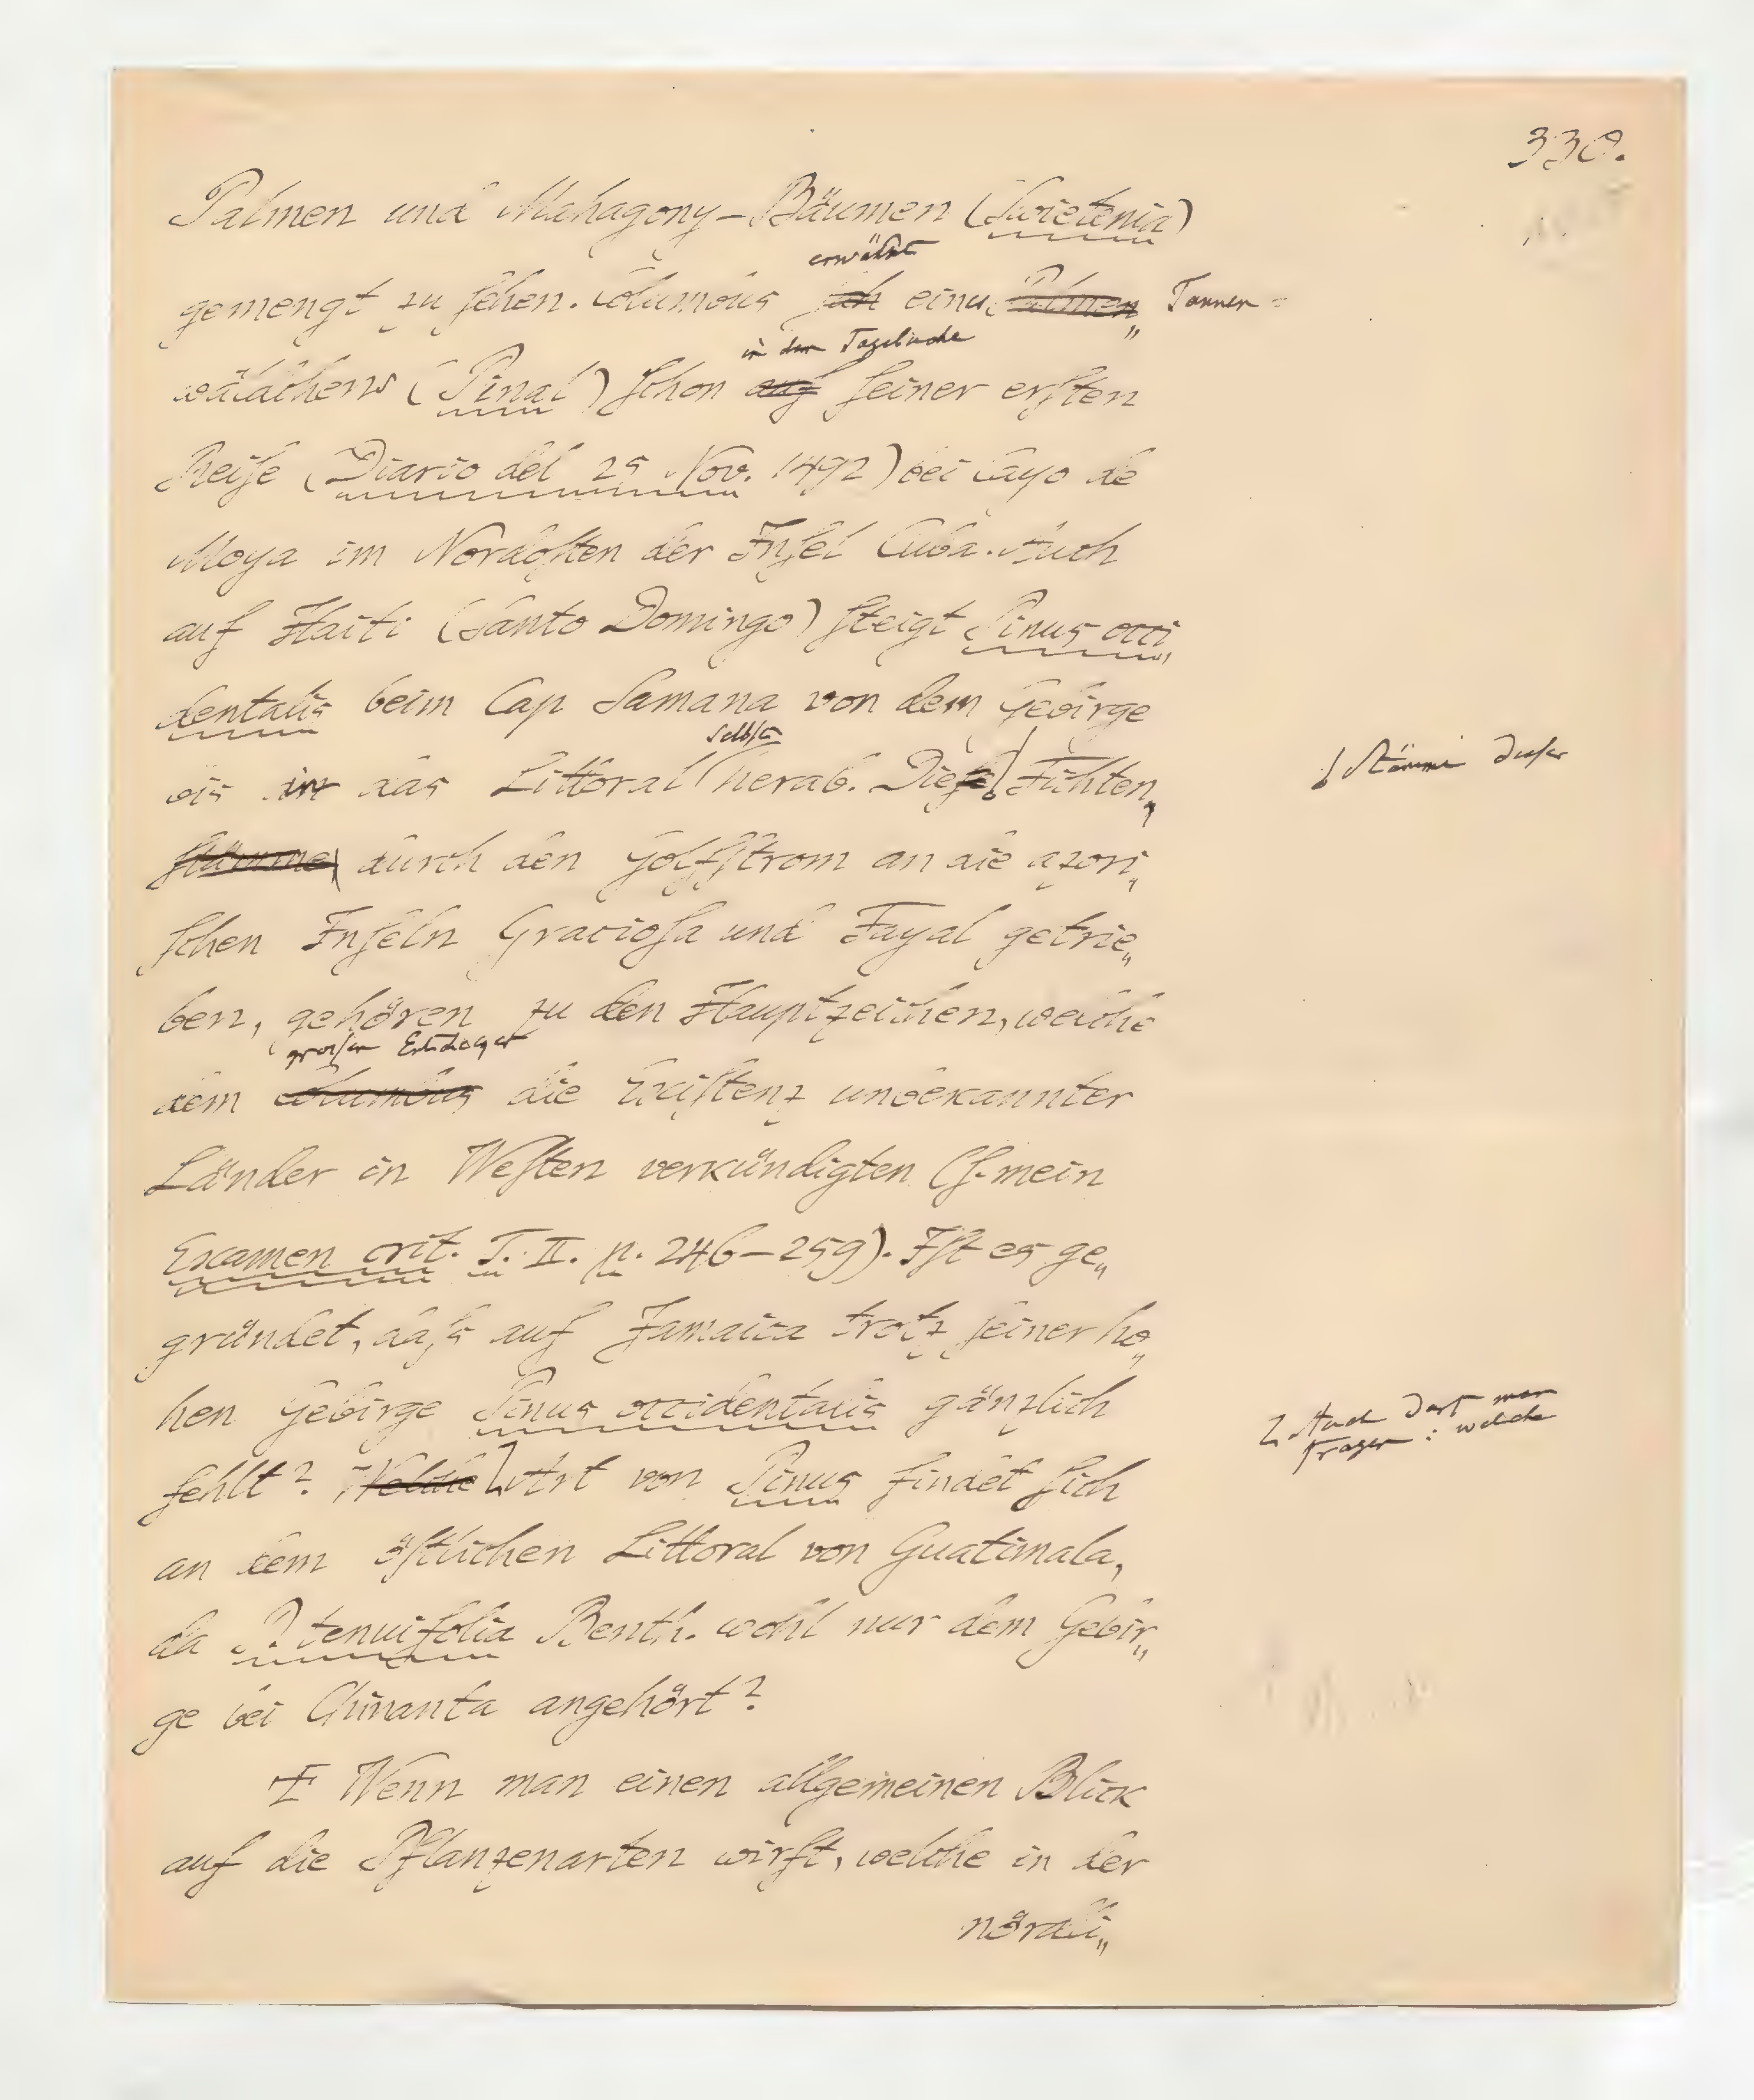 330.
Palmen und Mahagony-Bäumen (Swietenia)
erwähnt
gemengt zu sehen. Columbus sah eines Palmen„ Tannen=
in dem Tagebuche
wäldchens (Pinal) schon auf seiner ersten
Reise (Diario del 25 Nov. 1492) bei Cayo de
Moya im Nordosten der Insel Cuba. Auch
auf Haiti (Santo Domingo) steigt Pinus occi„
dentalis beim Cap Samana von dem Gebirge
selbst
bis in das Littoral herab. Diese Fichten„
Stämme dieser
stämme, durch den Golfstrom an die azori„
schen Inseln Graciosa und Fayal getrie„
ben, gehören zu den Hauptzeichen, welche
großen Entdecker
dem Columbus die Existenz unbekannter
Länder in Westen verkündigten (s. mein
Examen crit. T. II. p. 246–259). Ist es ge„
gründet, daß auf Jamaica trotz seiner ho„
hen Gebirge Pinus occidentalis gänzlich
Auch darf man
fragen: welche
fehlt? Welche Art von Pinus findet sich
an dem östlichen Littoral von Guatimala,
da P. tenuifolia Benth. wohl nur dem Gebir„
ge bei Chinanta angehört?
Wenn man einen allgemeinen Blick
auf die Pflanzenarten wirft, welche in der
nördli„